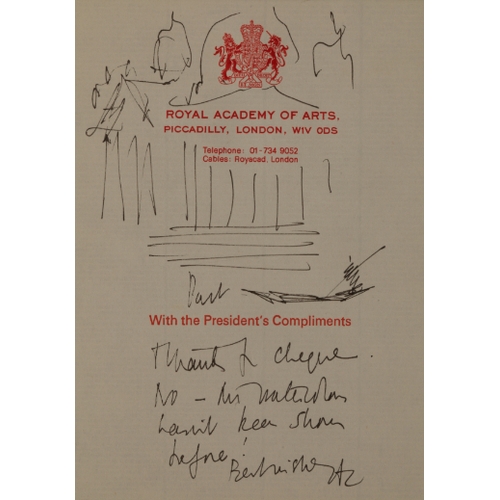 ROYAL ACADEMY OF ARTS,
PICCADILLY, LONDON, W1V 0DS
Telephone: 01-734 9052
Cables: Royacad, London
With the President's Compliments
Thanks for cheque.
No – this watercolour
hasn't been shown
before!
Best wishes